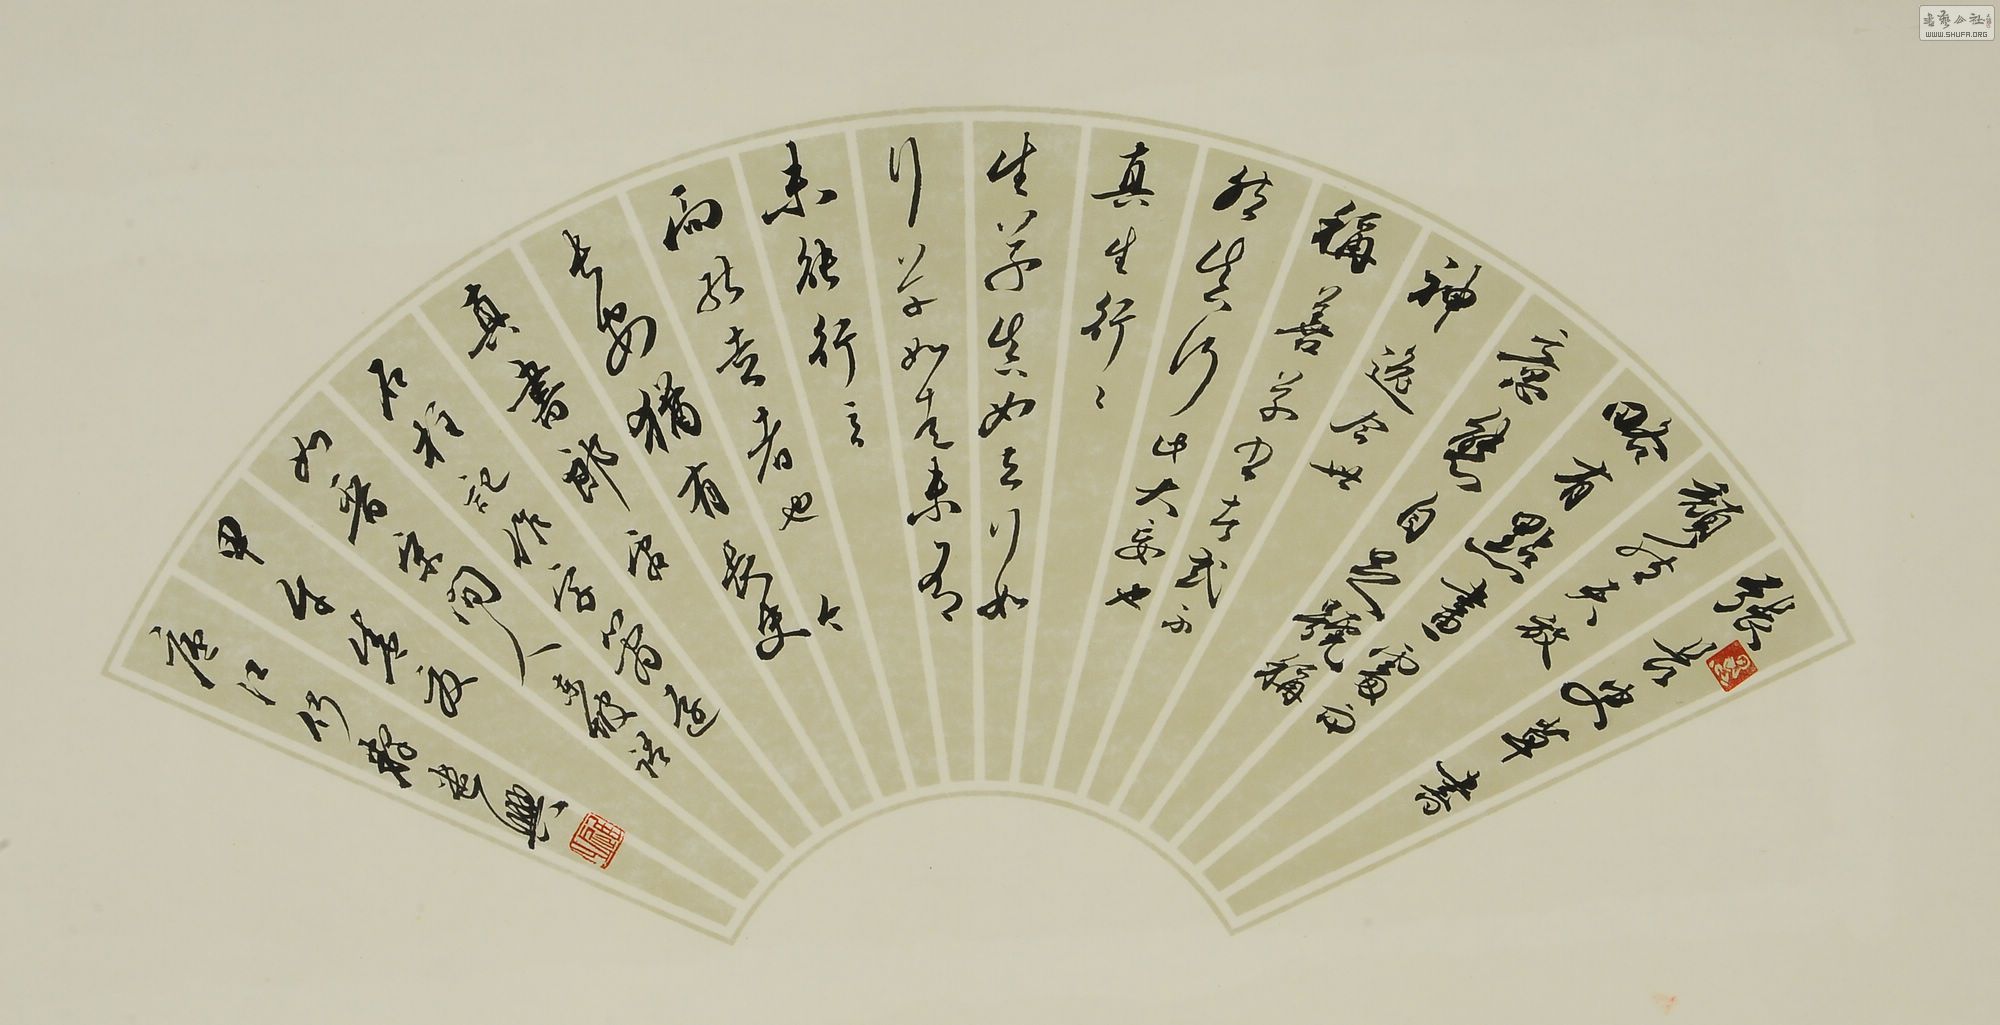 張長史草書
頹然天放
略有點畫處而
意態自足號稱
神逸今世
稱善草書者或不
能真行此大妄也
真生行〻
生草真如立行如
行草如走未有
未能行立
而能走者也今
長安猶有長史
真書郎官
石柱記作字簡遠
如晉宋間人東坡語
甲午
書藝公社
WWW.SHUFA.ORG